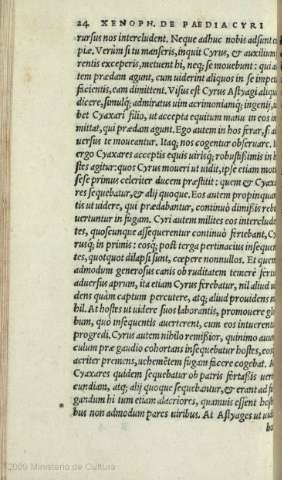 24 XENOPH. DE PÆDIA CYRI
rursus nos intercludent. Neque adhuc nobis adsunt
piæ. Verùm si tu manseris, inquit Cyrus, & auxilium
rentis exceperis, metuent hi, neq; se mouebunt: qui
tem prædam agunt, cum uiderint aliquos in se impe
facientis, eam dimittent. Visus est Cyrus Astyagi aliqu
dicere, simulq; admiratus uim acrimoniamq; ingenij,
bet Cyaxari filio, ut accepta equitum manu in eos in
mittat, qui prædam agunt. Ego autem in hos ferar, si
uersus te moueantur. Itaq; nos cogentur obseruare.
ergo Cyaxares acceptis equis uirisq; robustißimis in h
stes agitur: quos Cyrus moueri ut uidit, ipse etiam mo
sese primus celeriter ducem præstitit: quem & Cyaxa
res sequebatur, & alij quoque. Eos autem propinquan
tis ut uidere, qui prædabantur, continuò dimißis re
uertuntur in fugam. Cyri autem milites eos interclude
tes, quoscunque assequerentur continuò feriebant, Cy
rusq; in primis: eosq; post terga pertinacius insequen
tes, quotquot dilapsi sunt, cœpere nonnullos. Et quem
admodum generosus canis ob ruditatem temerè fertur
aduersus aprum, ita etiam Cyrus ferebatur, nil aliud
dens quàm captum percutere, atq; aliud prouidens ni
hil. At hostes ut uidere suos laborantis, promouere gl
bum, quò insequentis auerterent, cum eos intuerentur
progredi. Cyrus autem nihilo remißior, quinimo
culum præ gaudio cohortans insequebatur hostes, eosq
acriter premens, uehemētem fugam facere cogebat.
Cyaxares quidem sequebatur ob patris fortaßis uere
cundiam, atq; alij quoque sequebantur, & erant ad
gandum hi tum etiam alacriores, quamuis essent ho
bus non admodum pares uiribus. At Astyages ut uid
2009 Ministerio de Cultura